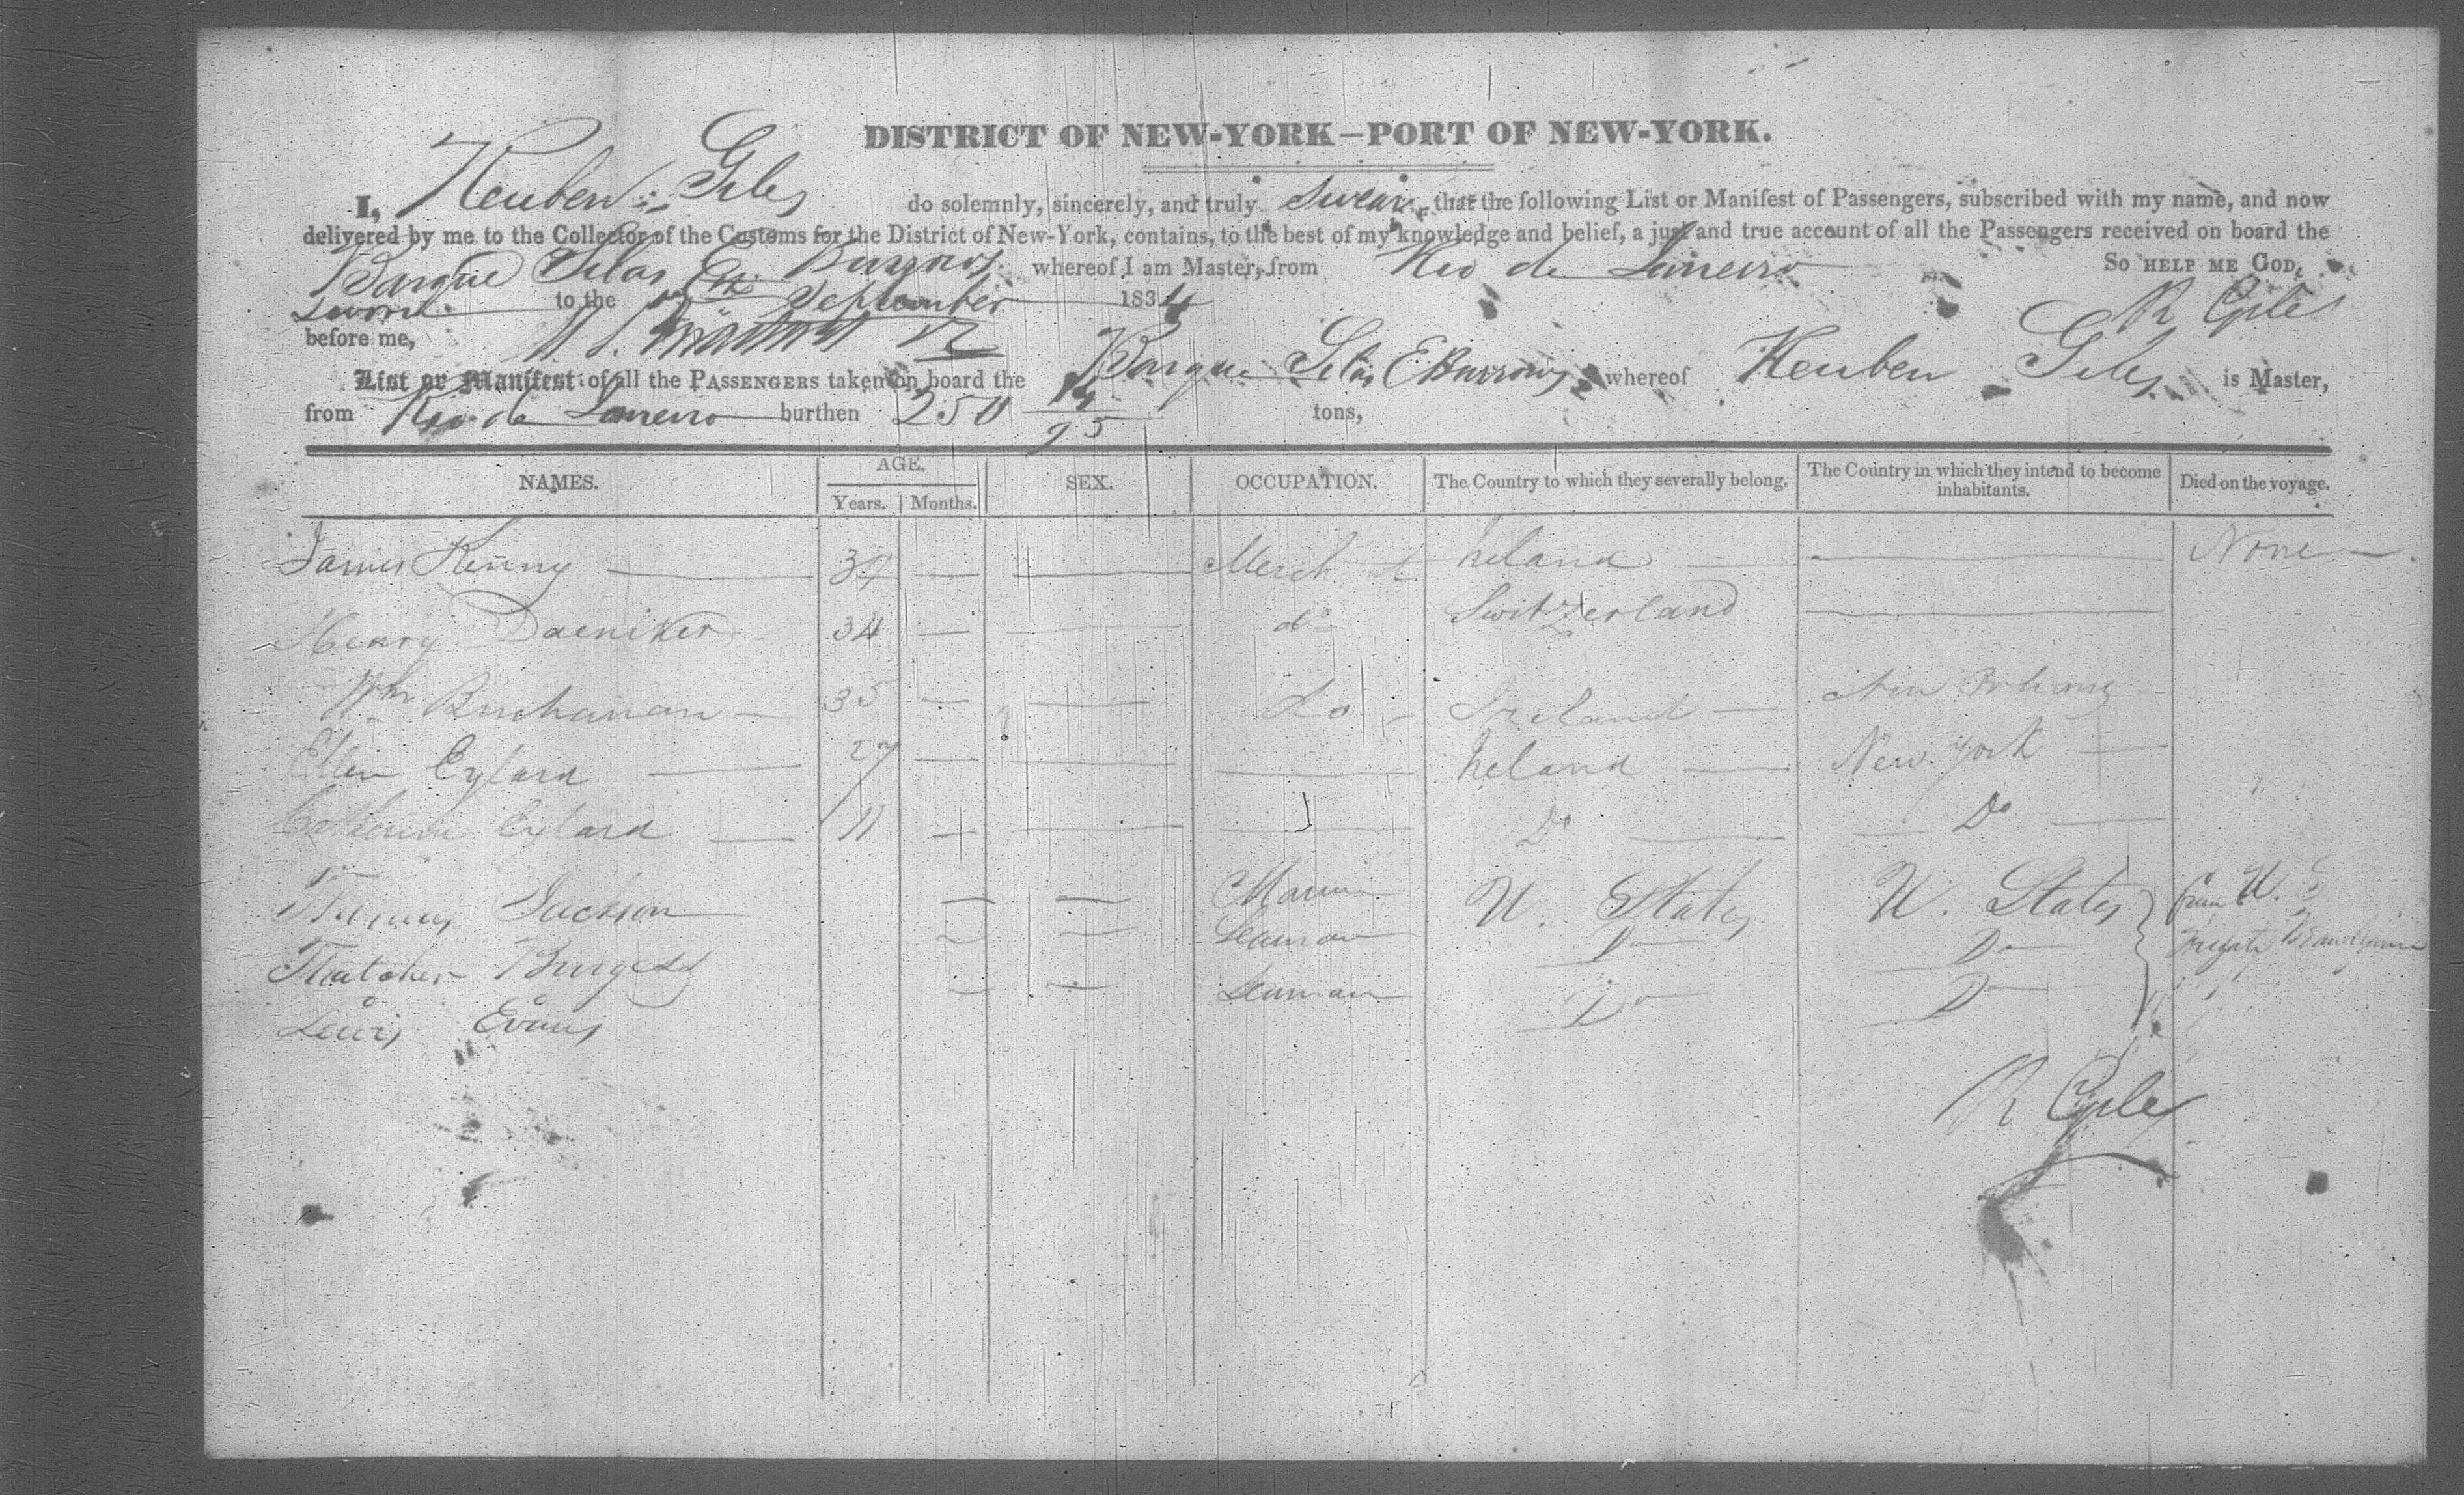 DISTRICT OF NEW-YORK—PORT OF NEW-YORK.
I, Reuben Giles do solemnly, sincerely, and truly swear, that the following List or Manifest of Passengers, subscribed with my name, and now
delivered by me to the Collector of the Customs for the District of New-York, contains, to the best of my knowledge and belief, a just and true account of all the Passengers received on board the
Barque Silas E. Burrows whereof I am Master, from Rio de Janeiro SO HELP ME GOD.
Sworn to the September 1834 R Giles
before me,
List or Manifest of all the PASSENGERS taken on board the Barque Silas E Burrows whereof Reuben Giles is Master,
from Rio de Janeiro burthen 250 14/95 tons,
NAMES. AGE. SEX. OCCUPATION. The Country to which they severally belong. The Country in which they intend to become inhabitants. Died on the voyage.
Years. Months.
James Kenny 34 Merch t Ireland None
Henry Daeniker 34 do Switzerland
Wm Buchanan 35 do Ireland New Orleans
Ellen Eyland 27 Ireland New York
Eyland 11 Do Do
Thomas Jackson Marine U. States U. States from U. S
Thatcher Burgess Seaman Do Do Frigate Brandywine
Lewis Evans Seaman Do Do
R Giles